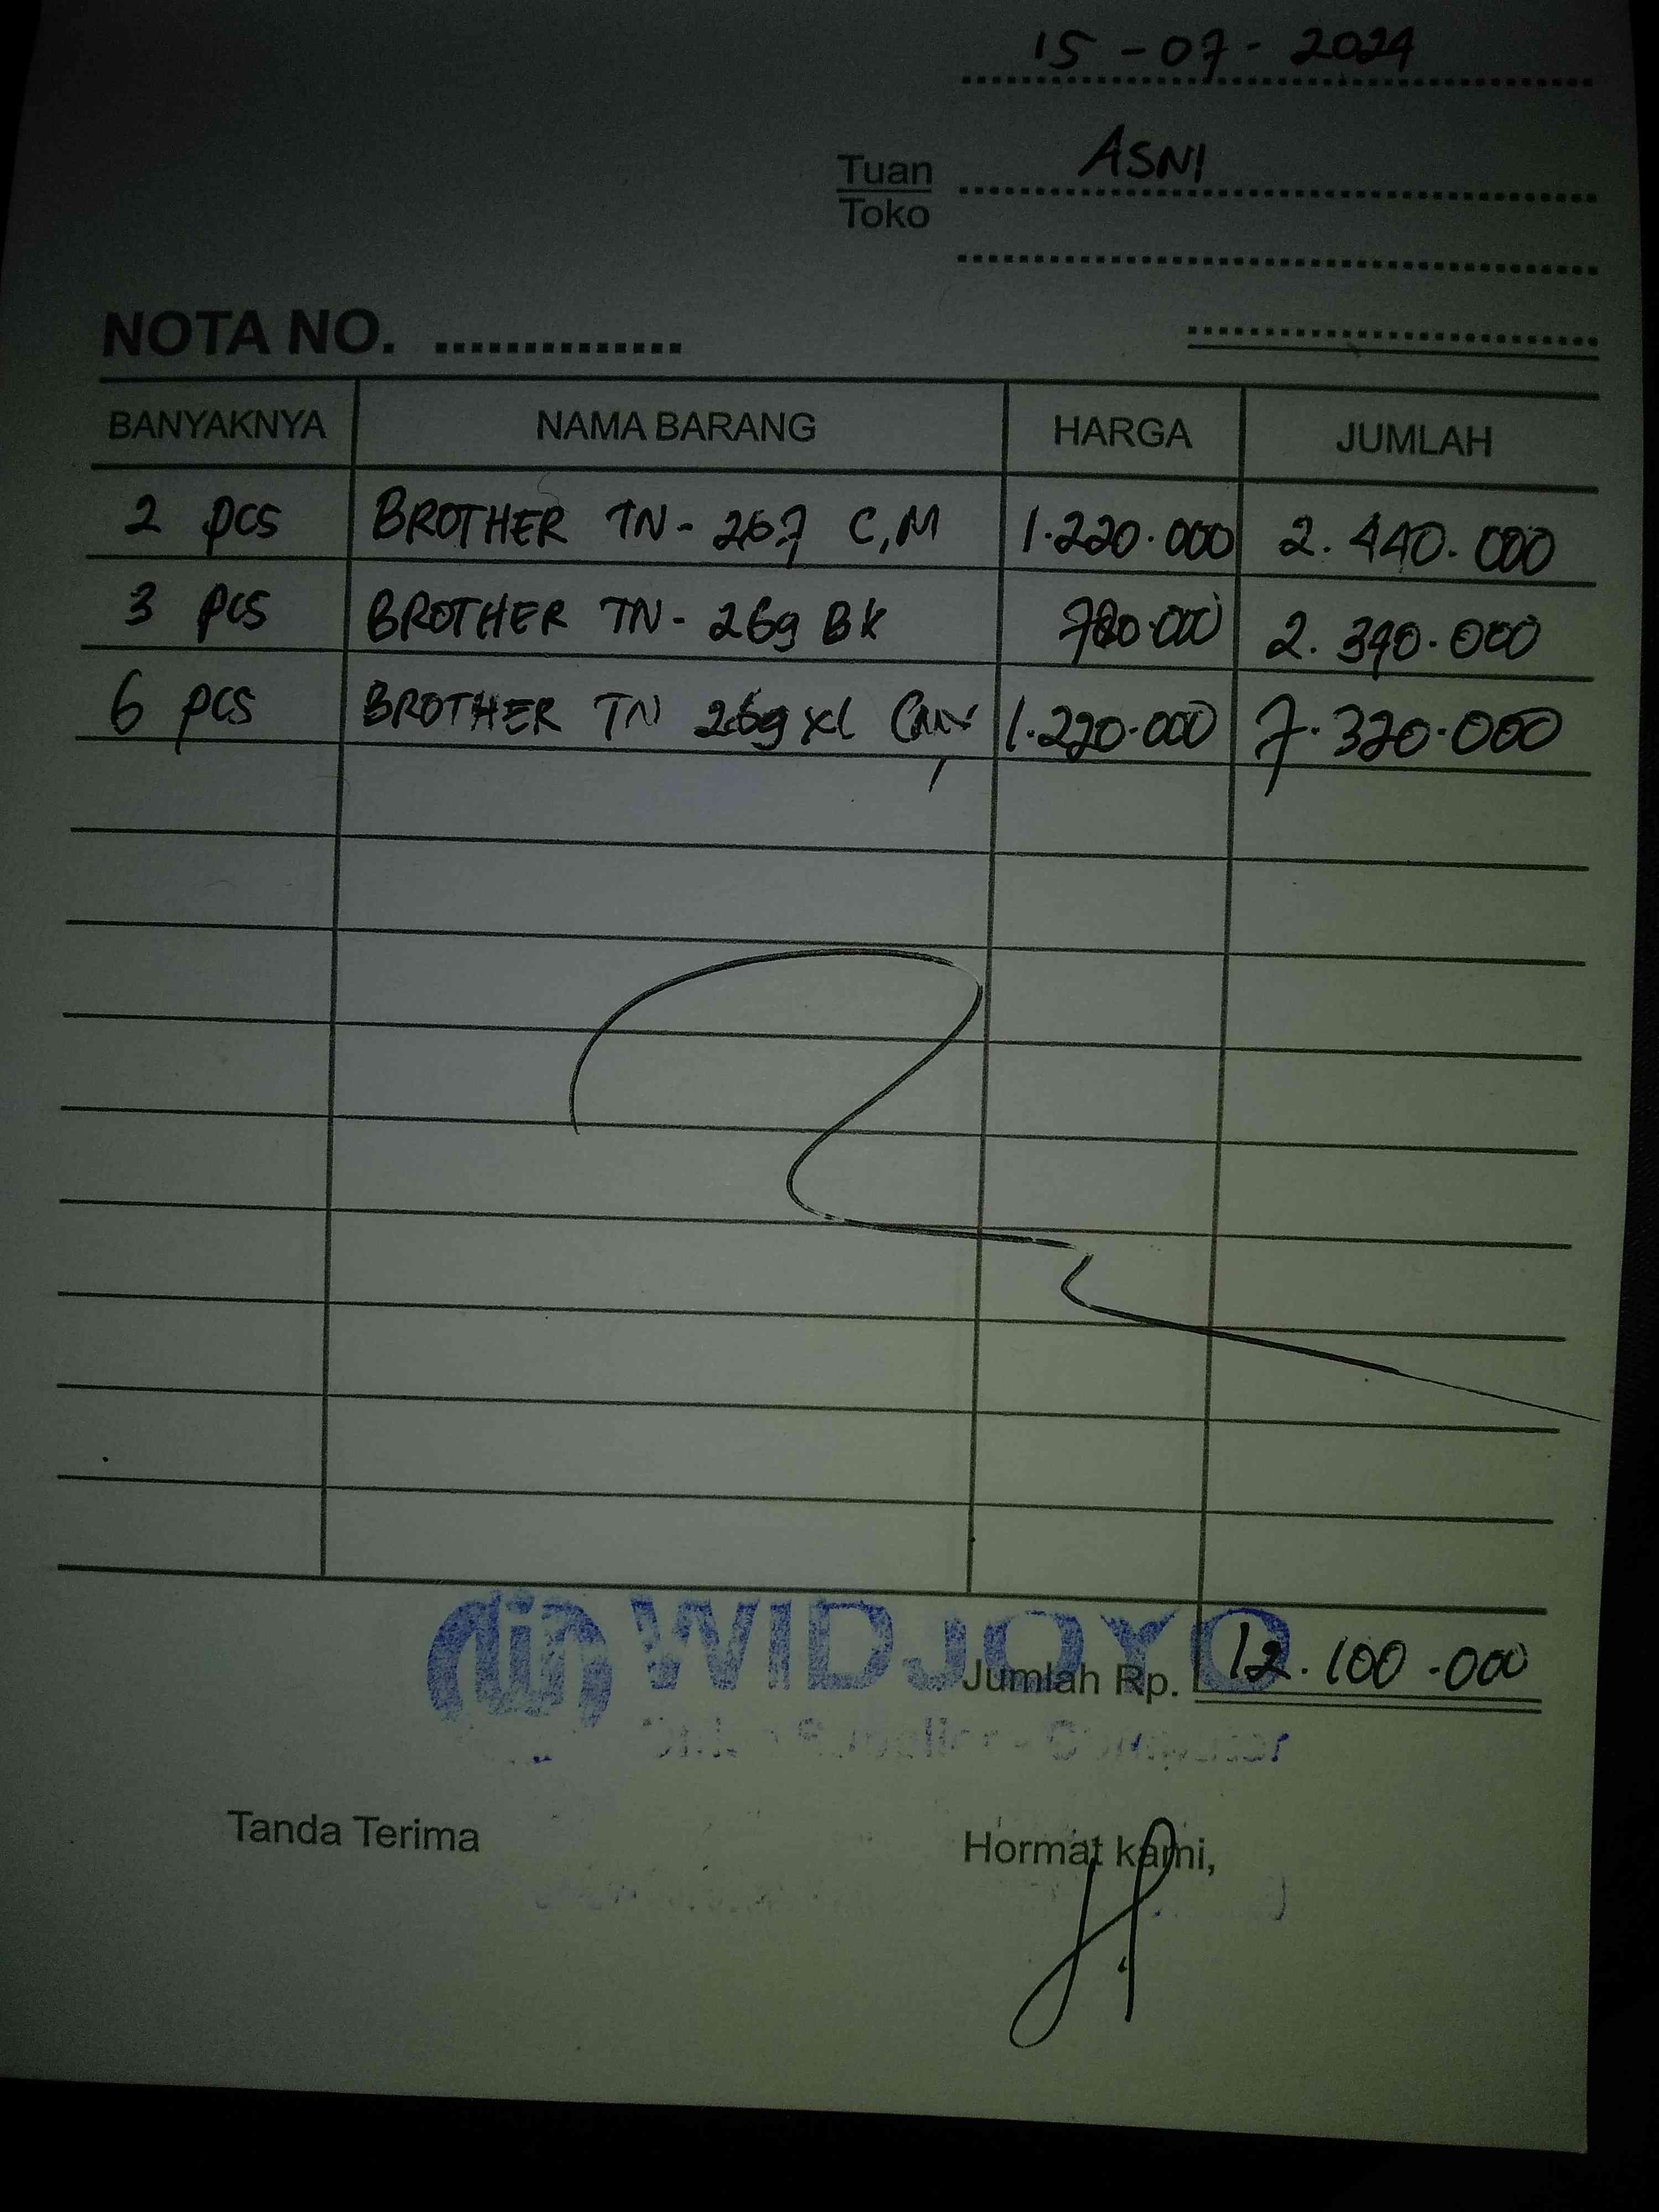 15-07-2024
Tuan ASNI
Toko
NOTA NO. ...............
BANYAKNYA NAMA BARANG HARGA JUMLAH
2 pcs BROTHER TN-267 C,M 1.220.000 2.440.000
3 pcs BROTHER TN-269 BK 780.000 2.340.000
6 pcs BROTHER TN 269 XL CMY 1.220.000 7.320.000
WIDJOYO
Jumlah Rp. 12.100.000
Tanda Terima Hormat kami,